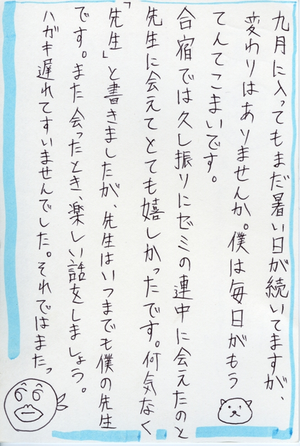 九月に入ってもまだ暑い日が続いてますが、
変わりはありませんか。僕は毎日がもう
てんてこまいです。
合宿では久し振りにゼミの連中に会えたのと
先生に会えてとても嬉しかったです。何気なく
「先生」と書きましたが、先生はいつまでも僕の先生
です。また会ったとき楽しい話をしましょう。
ハガキ遅れてすいませんでした。それではまたっ